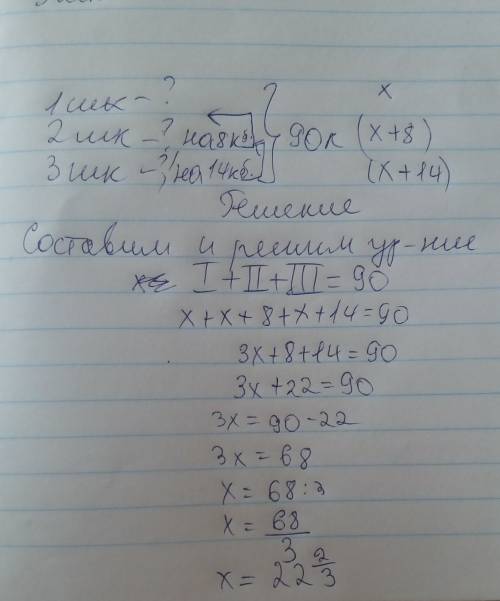 1 шк – ?
x
2 шк – ?, на 8 к б. 90 к (x+8)
3 шк – ?, на 14 к б. (x+14)
Решение
Составим и решим ур-ние
I + II + III = 90
x + x + 8 + x + 14 = 90
3x + 8 + 14 = 90
3x + 22 = 90
3x = 90 - 22
3x = 68
x = 68 : 3
x = 68/3
x = 22 2/3